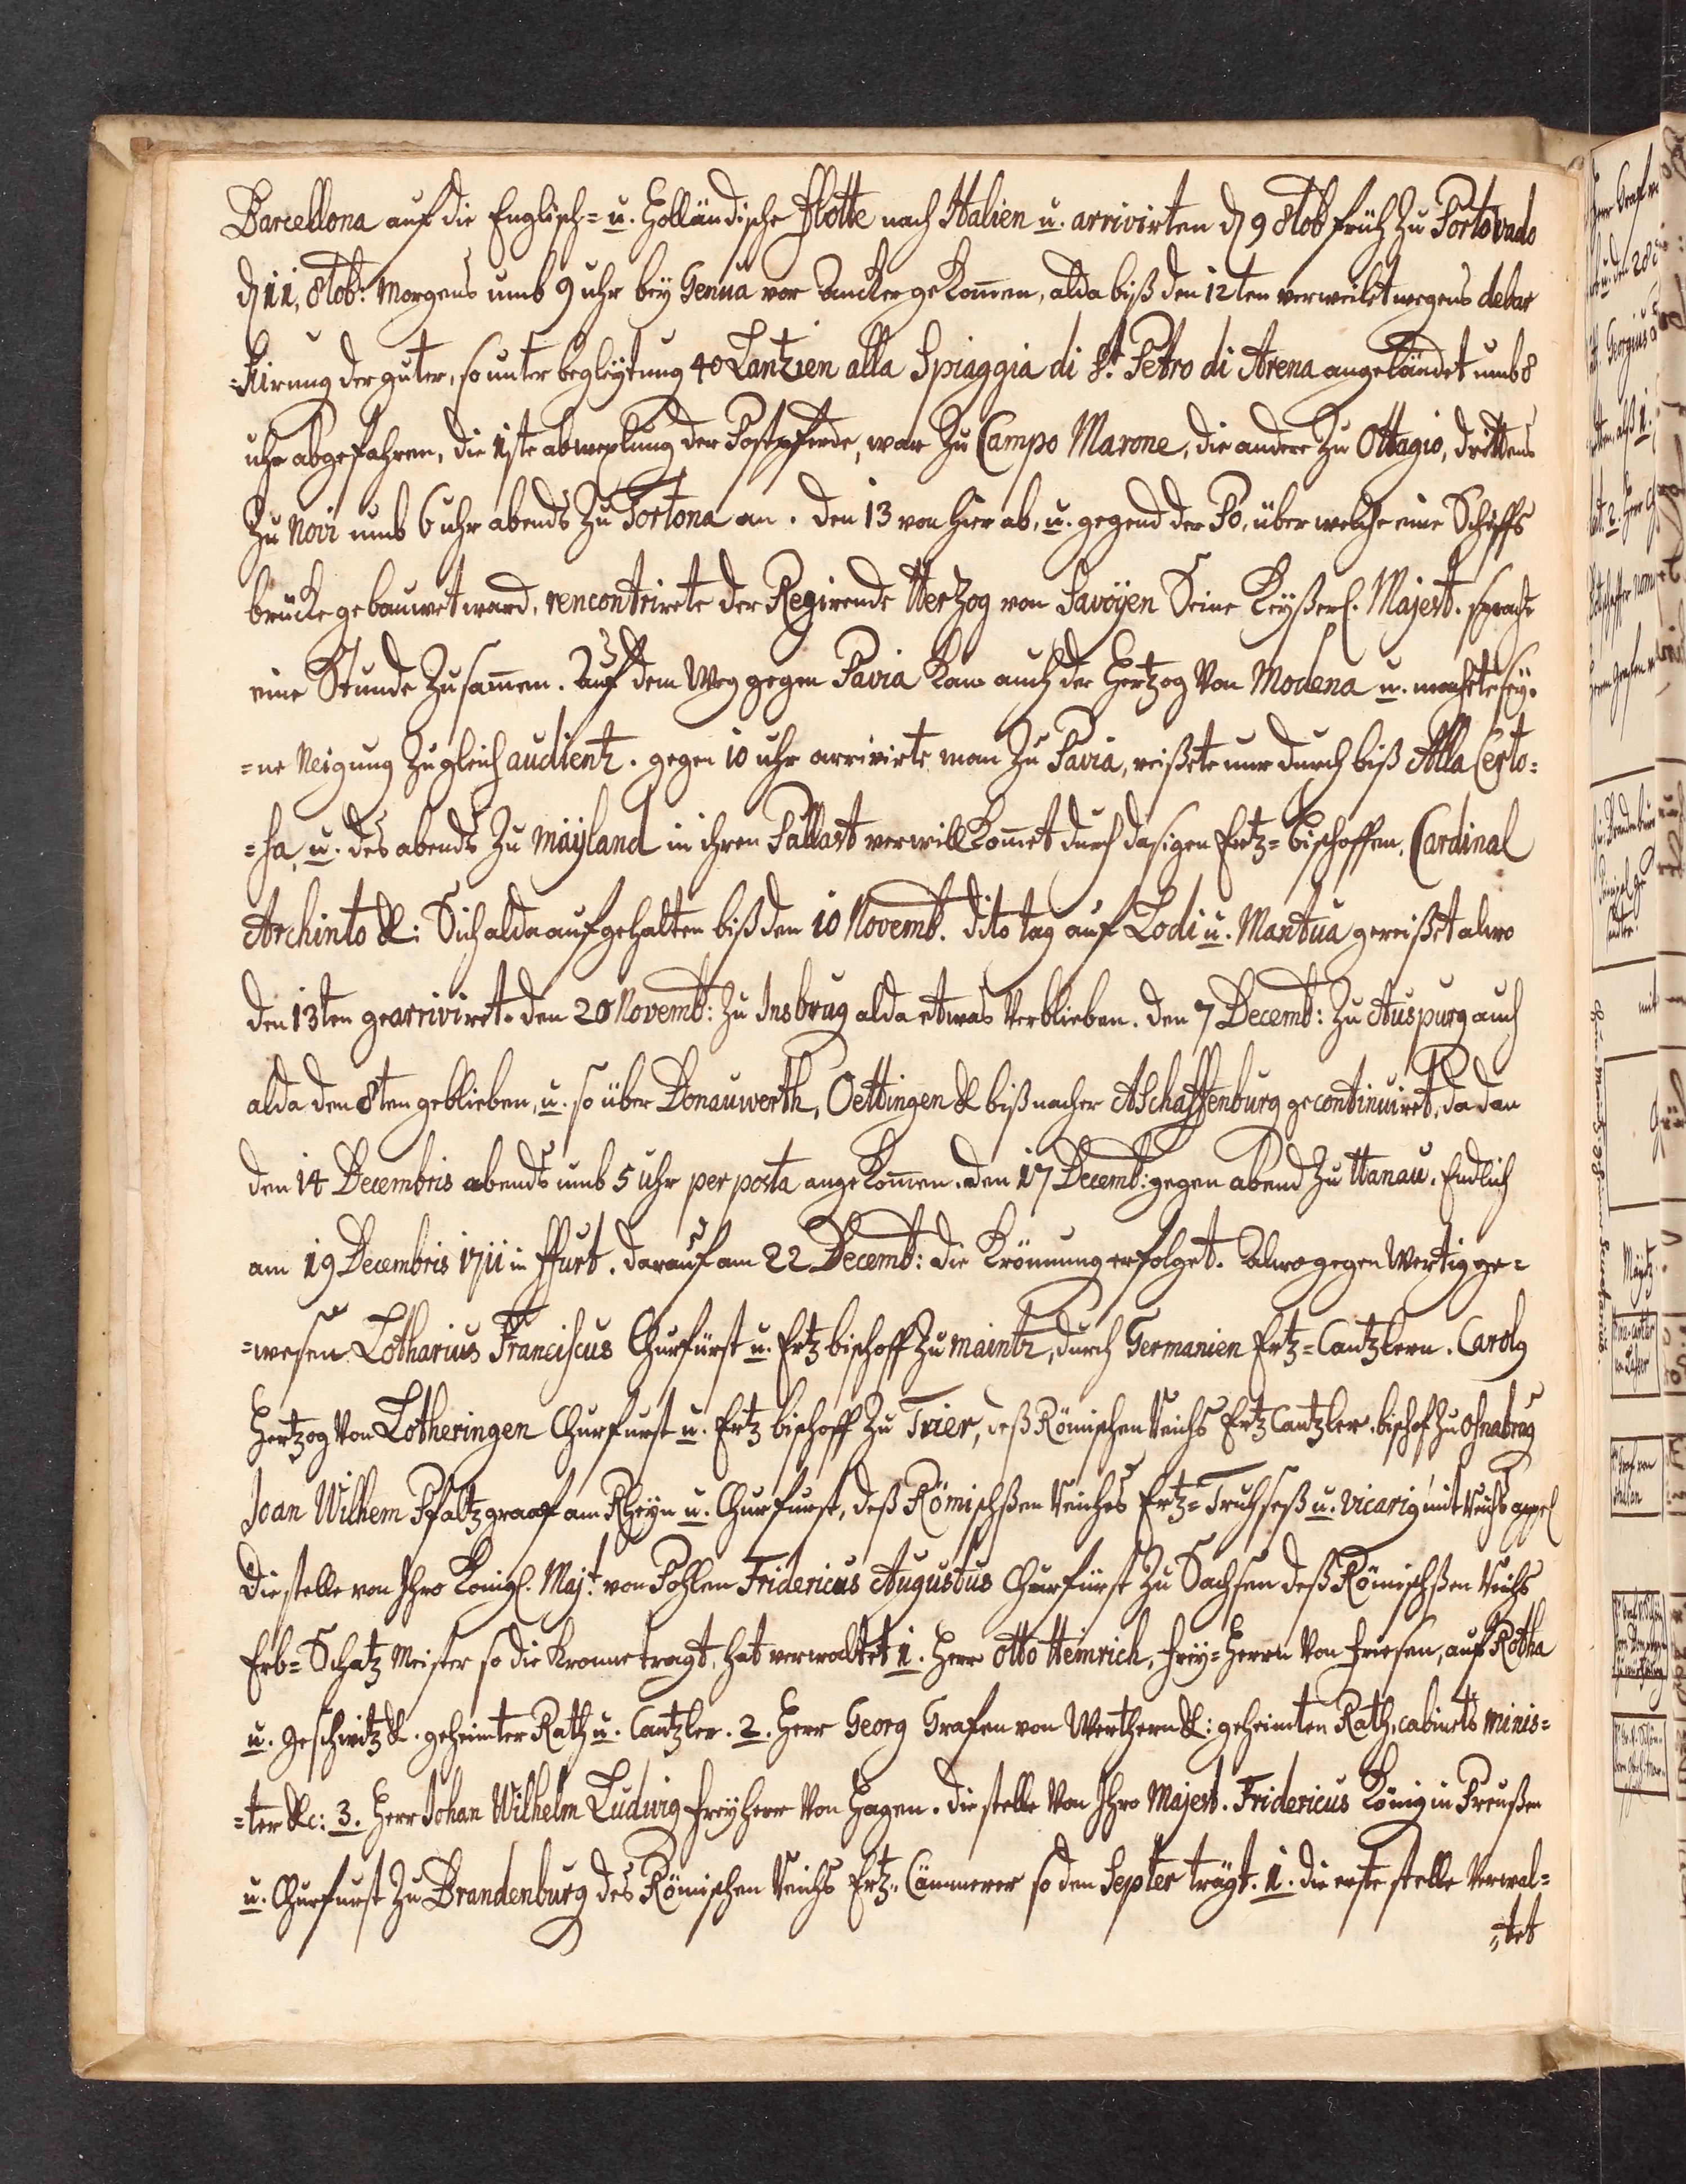 Barcellona auf die Englisch= u. Holländische flotte nach Italien u. arrivirten d 9 8tob früh zu Porto vado
d 11, 8tob: Morgens umb 9 uhr bey Genua vor Ancker gekommen, alda biß den 12ten verweilet wegens debar
=kirung der guter, so unter begleytung 40 Lantzien alla Spiaggia di St. Petro di Arena angeländet umb 8
uhr abgefahren, die 1ste abwexlung der Postpferde, war zu Campo Marone, die andere zu Ottagio, drittens
zu Novi umb 6 uhr abends zu Tortona an. den 13 von hier ab, u. gegend der Po, über welche eine Schiffs
brücke gebauwet ward, rencontrirete der Regirende Hertzog von Savoÿen Seine Keÿßerl. Majest. sprache
eine Stunde zusammen. Auf dem Weg gegen Pavia kam auch der Hertzog von Modena u. machete sey-
=ne Neigung zugleich audientz. gegen 10 uhr arrivirte man zu Pavia, reißete nur durch biß Alla Certo=
=sa, u. des abends zu Maÿland in ihren Pallast verwillkomet durch dasigen Ertz=bischoffen, Cardinal
Archinto &: Sich alda aufgehalten biß den 10 Novemb. dito tag auf Lodi u. Mantua gereißet alwo
den 13ten gearriviret. den 20 Novemb: zu Insbrug alda etwas verblieben. den 7 Decemb: zu Auspurg auch
alda den 8ten geblieben, u. so über Donauwerth, Oettingen & biß nacher Aschaffenburg gecontinuiret, da dan
den 14 Decembris abends umb 5 uhr per posta angekommen. den 17 Decemb: gegen abend zu Hanau. Endlich
am 19 Decembris 1711 in ffurt. darauf am 22 Decemb: die Krönnung erfolget. Alwo gegen wertig ge=
=wesen Lotharius Franciscus Churfürst u. Ertzbischoff zu maintz, durch Germanien Ertz=Cantzlern. Carolg
Hertzog von Lotheringen Churfurst u. Ertz bischoff zu Trier, deß Römischen Reichs Ertz Cantzler. bischof zu Osnabrug
Joan Wilhem Pfaltzgraaf am Rheyn u. Churfurst, deß Römischßen Reiches Ertz=Truchseß u. vicarig mit Reichs appel
die stelle von Ihro Konigl. Majt. von Pohlen Fridericus Augustus Churfürst zu Sachsen deß Römischßen Reichs
Erb=Schatz Meister so die Kronne tragt, hat verwaltet 1. Herr otto Heinrich, frey=Herrn von friesen, auf Rötha
u. Geschwitz &. geheimter Rath u. Cantzler. 2. Herr Georg Grafen von Werthern &: geheimten Rath, cabinets minis=
=ter &c: 3. Herr Johan Wilhelm Ludwig freyherr von Hagen. die stelle von Ihro Majest. Fridericus König in Preußen
u. Churfurst zu Brandenburg des Römischen Reichs Ertz=Cämmerer so den Septer trägt. 1. die erste stelle verwal=
=tet